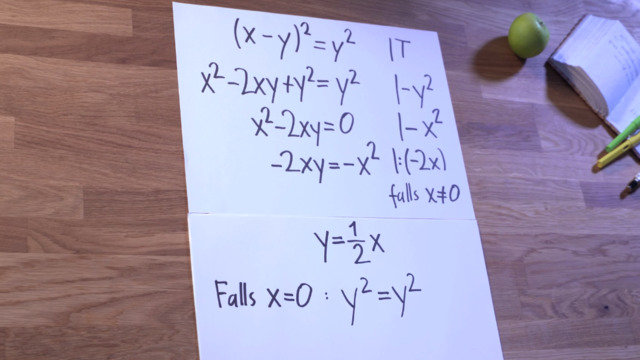 (x-y)²=y² |T
x²-2xy+y²=y² |-y²
x²-2xy=0 |-x²
-2xy=-x² |:(-2x)
falls x≠0
y=½x
Falls x=0: y²=y²